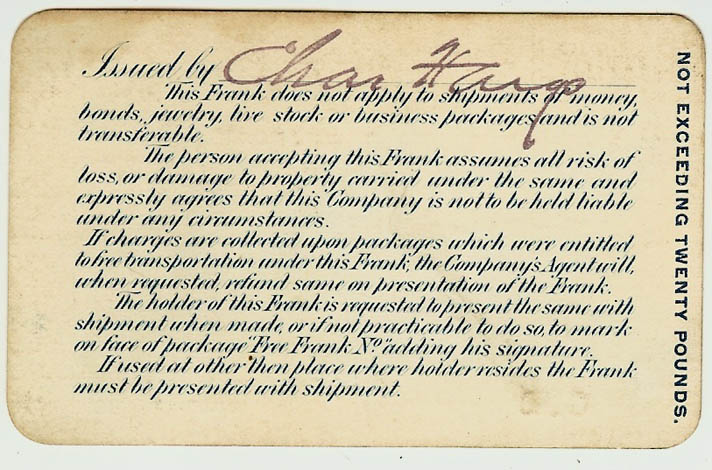 Issued by Chas Hargo
This Frank does not apply to shipments of money,
bonds, jewelry, live stock or business packages and is not
transferable.
The person accepting this Frank assumes all risk of
loss, or damage to property carried under the same and
expressly agrees that this Company is not to be held liable
under any circumstances.
If charges are collected upon packages which were entitled
to free transportation under this Frank, the Company's Agent will,
when requested, refund same on presentation of the Frank.
The holder of this Frank is requested to present the same with
shipment when made, or if not practicable to do so, to mark
on face of package "Free Frank No." adding his signature.
If used at other then place where holder resides the Frank
must be presented with shipment.
NOT EXCEEDING TWENTY POUNDS.